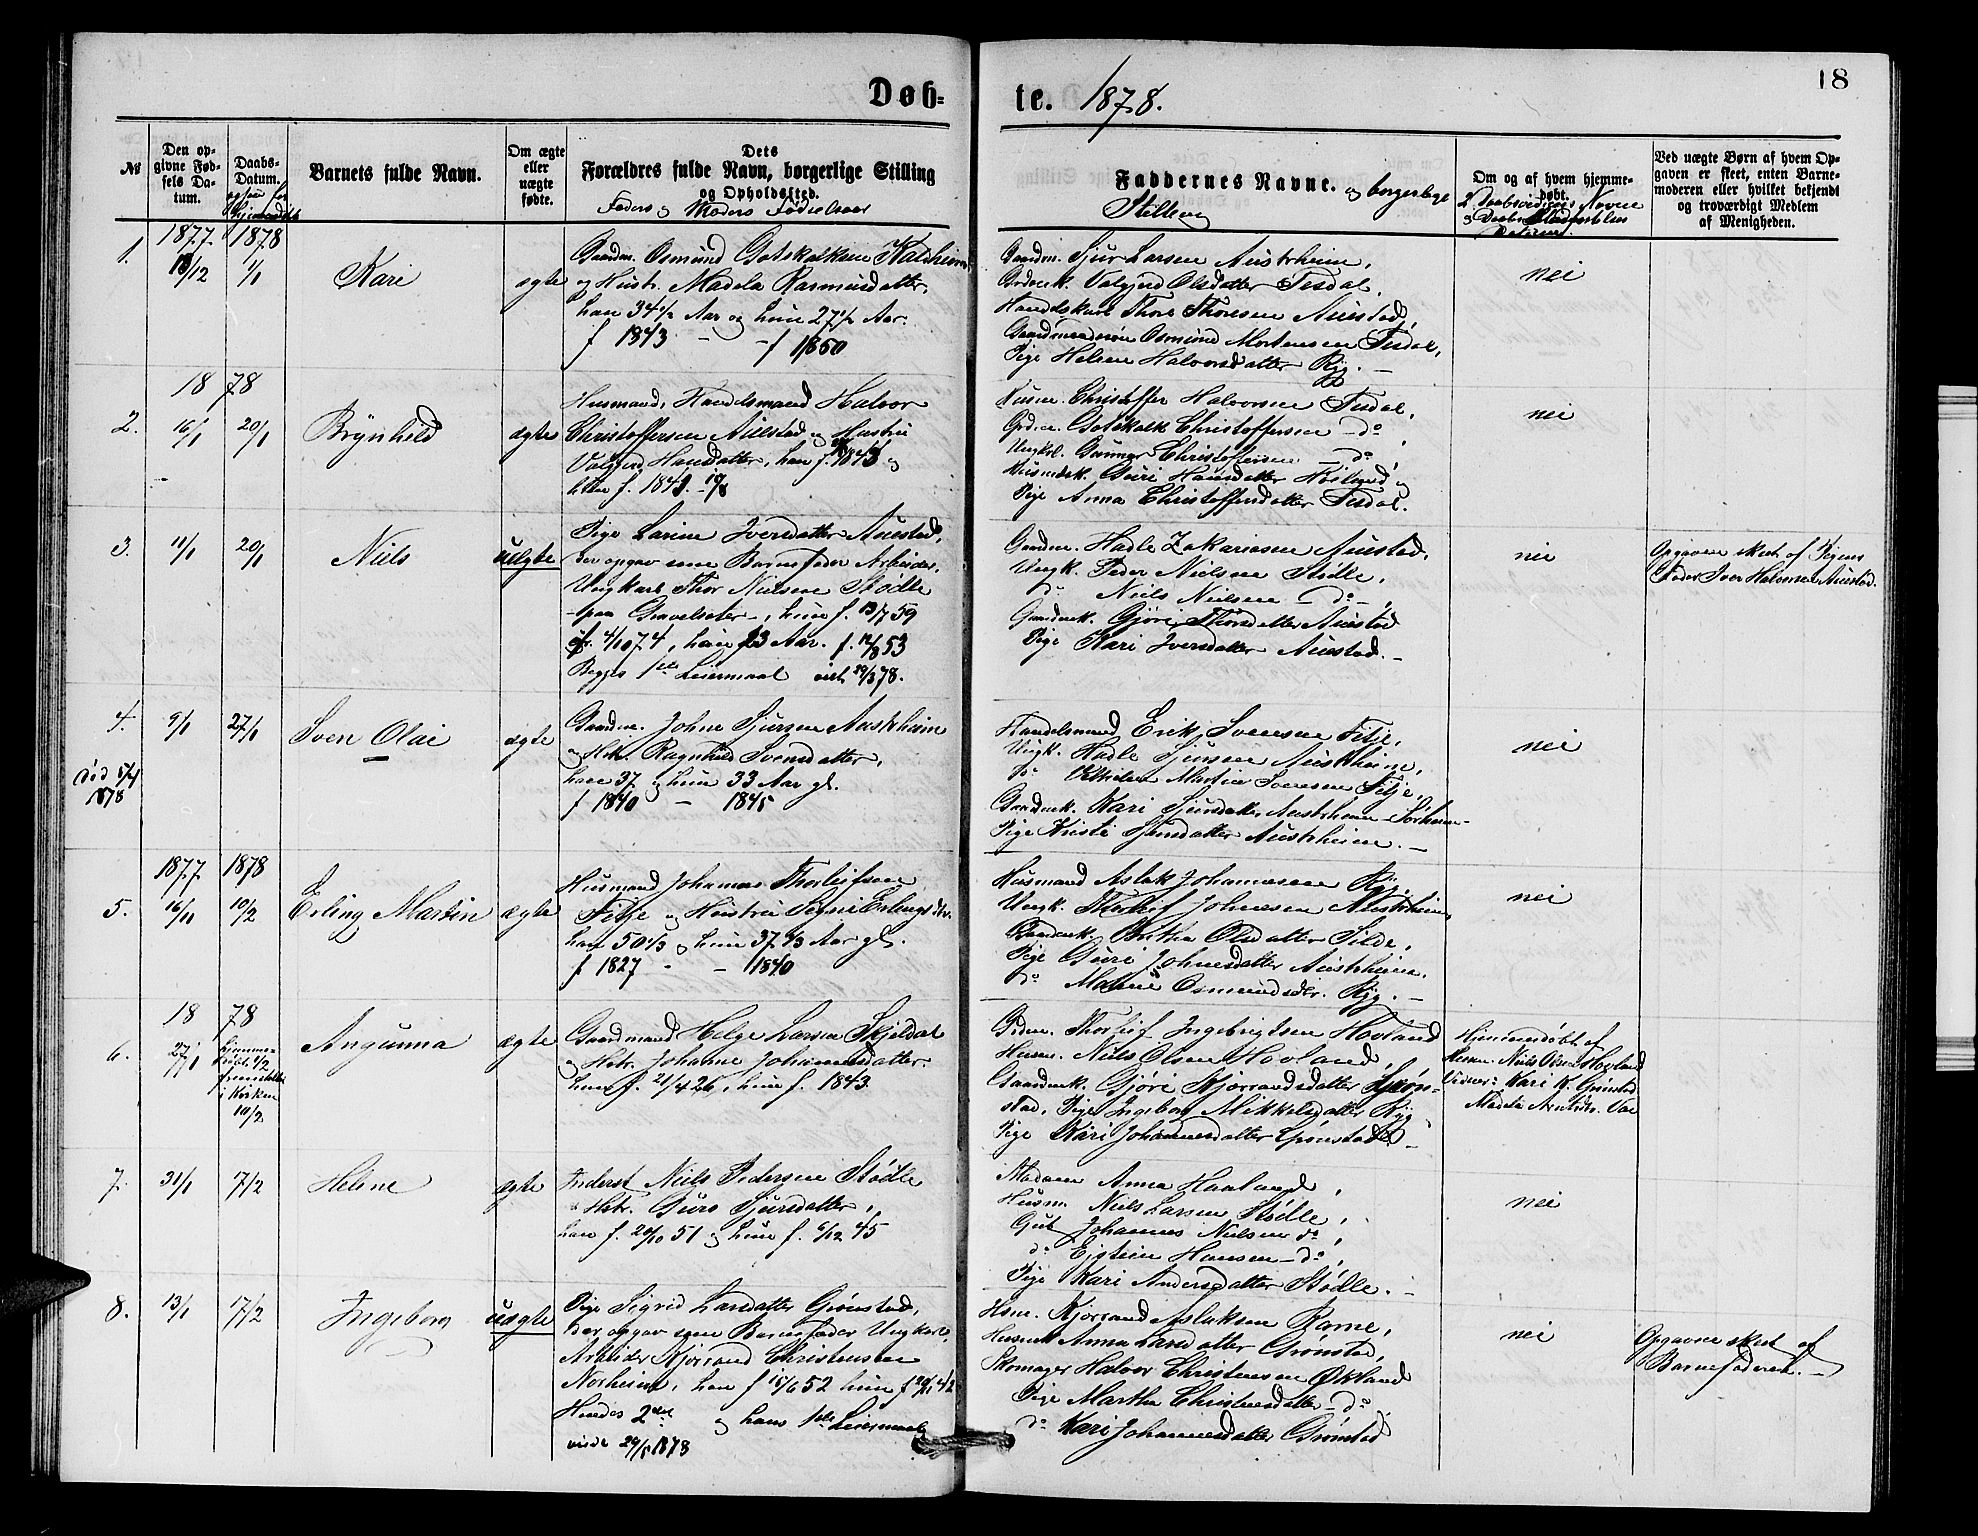 18
Døb-
te. 1878.
№
Den op-
givne Fød-
sels Da-
tum.
Daabs-
Datum.
Barnets fulde Navn.
Om ægte
eller
uægte
fødte.
Dets
Forældres fulde Navn, borgerlige Stilling
og Opholdssted.
Faders og Moders Fødselsaar
Faddernes Navne. og borgerlige
Stilling
Om og af hvem hjemme-
døbt.
Ved uægte Børn af hvem Op-
gaven er skeet, enten Barne-
moderen eller hvilket bekjendt
og troværdigt Medlem
af Menigheden.
1.
1877
12
1878
1/1
Kari
ægte
Gaardm. Osmund Gotskalksen
og Hustr. Madela Rasmusdatter,
han 34 1/2 Aar og hun 27 1/2 Aar.
f 1843 - - f 1850
Gaardm. Sjur Larsen Austrheim,
Valgjerd Olsdatter Tesdal,
Thore Thoresen Auestad,
Osmund Mortensen Tesdal,
Pige Helene Halvorsdatter Ryg. -
nei
18 78
2.
16/1
20/1
Brynhild
ægte
Husmand, Handelsmand Halvor
Christoffersen Auestad og Hustru
Valgjerd Hansdatter, han f. 1843 og
hun f.
Husm. Christoffer Halvorsen Tesdal,
Grdm. Gotskalk Christoffersen - do,
Ungk. Gunnar Christoffersen - do,
Guri Hansdatter og
Pige Anna Christoffersdatter Tesdal.
nei
3.
11/1
20/1
Niels
uægte
Pige Larine Iversdatter Auestad,
der opgav som Barnefader Arbeider,
Ungkarl Thor Nielsen Stødle
paa , hun f. 13/7 59
4/10 74, han 23 Aar. f. 12/8 53
Begges 1ste Leiermaal viet 29/3 78.
Gaardm. Hadle Zakariasen Auestad,
Ungk. Peder Nielsen Stødle,
do Niels Nielsen - do -,
Gaardmk. Gjøri Thorsdatter Auestad
Pige Kari Iversdatter Auestad. -
nei
Opgaven skeet af Pigens
Fader Iver Halvorsen Auestad.
4.
9/1
27/1
Sven Olai
ægte
død
1878
Gaardm. Johne Sjursen Austrheim
og Hstr. Ragnhild Svensdatter,
han 37 og hun 33 Aar gl.
f 1840 - 1845
Handelsmand Erik Svensen Fitje,
Ungk. Hadle Sjursen Austrheim,
do Vilhelm Martin Svensen Fitje,
Gaardmk. Kari Sjursdatter Austrheim
Pige Kristi Sjursdatter Austrheim. -
nei
5.
1877
16/11
1878
10/2
Erling Martin
ægte
Husmand Johannes Thorleifsen
Fitje og Hustru Signi Erlingsdtr.
han 50 1/3 og hun 37 1/3 Aar gl.
f 1827 - - 1840
Husmand Aslak Johannesen Ryg,
Ungk. Johnesen Austrheim,
Gaardmk. Olsdatter Silde,
Pige Guri Johnesdatter Austrheim.
do Malene Osmundsdtr. Ryg. -
nei
18 78
6.
27/1
Hjemme-
døbt 1/2
fremstillet
i Kirken
10/2
Angunna
ægte
Gaardmand Helge Larsen Skjeldal
og Hstr. Johanne Johannesdatter.
han f. 21/4 26, hun f. 1843
Grdm. Thorleif Ingebrigtsen Hovland
Husm. Niels Olsen Hovland,
Gaardmk. Gjøri Kjørrandsdatter Grøn-
stad, Pige Ingeborg Mikkelsdatter Ryg
Pige Kari Johannesdatter Grønstad. -
Hjemmedøbt af
Husm. Niels Olsen Hovland
Vidner: Kari K. Grønstad
Madela
7.
31/1
17/2
Helene
ægte
Inderst Niels Pedersen Stødle
og Hstr. Guro Sjursdatter,
han f. 20/10 51 og hun f. 6/12 45
Madam Anna Haaland,
Husm. Niels Larsen Stødle,
Gut Johannes Nielsen do,
do Eistein Hansen - do,
Pige Kari Andersdatter Stødle. -
nei
8.
13/1
17/2
Ingeborg
uægte
Pige Sigrid Larsdatter Grønstad,
der opgav som Barnefader Ungkarl,
Arbeider Kjørrand Christensen
Norheim, han f 15/6 52 hun f
Hendes 2det og hans 1ste Leiermaal
viede 24/5 1878
Husm. Kjørrand Aslaksen Ramne,
Anna Larsdatter Grønstad,
Skomager Halvor Christensen Økland
Pige Martha Christensdatter - do
do Kari Johannesdatter Grønstad
nei
Opgaven skeet af
Barnefaderen. -